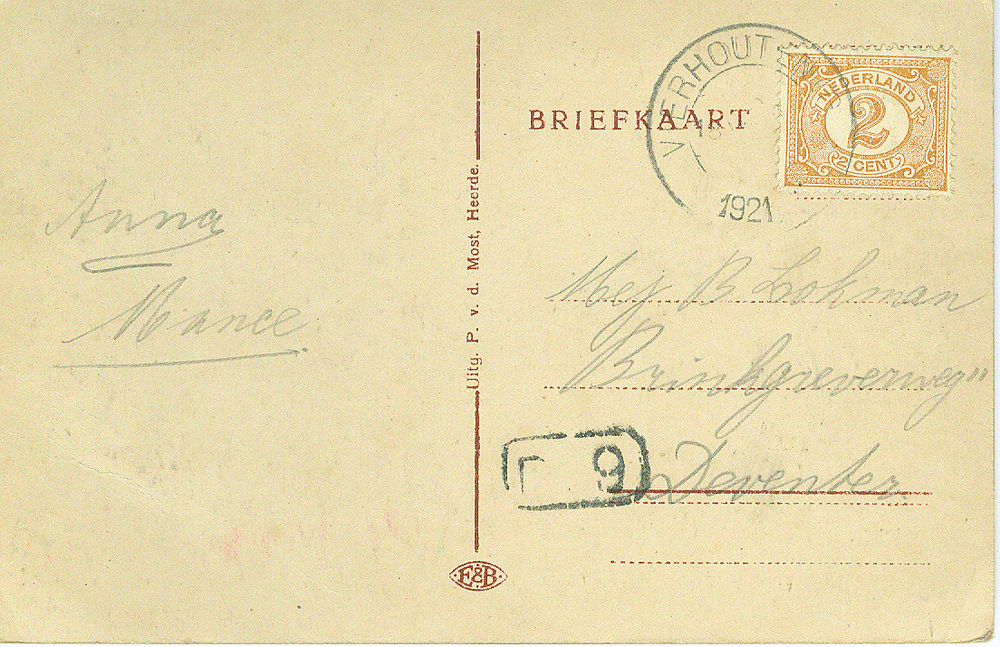 VIERHOUTEN
1921
BRIEFKAART
NEDERLAND
2
2 CENT
Anna
Mance
Uitg. P. v. d. Most, Heerde.
Mej B Lokman
Brinkgreverweg"
Deventer
9
E&B